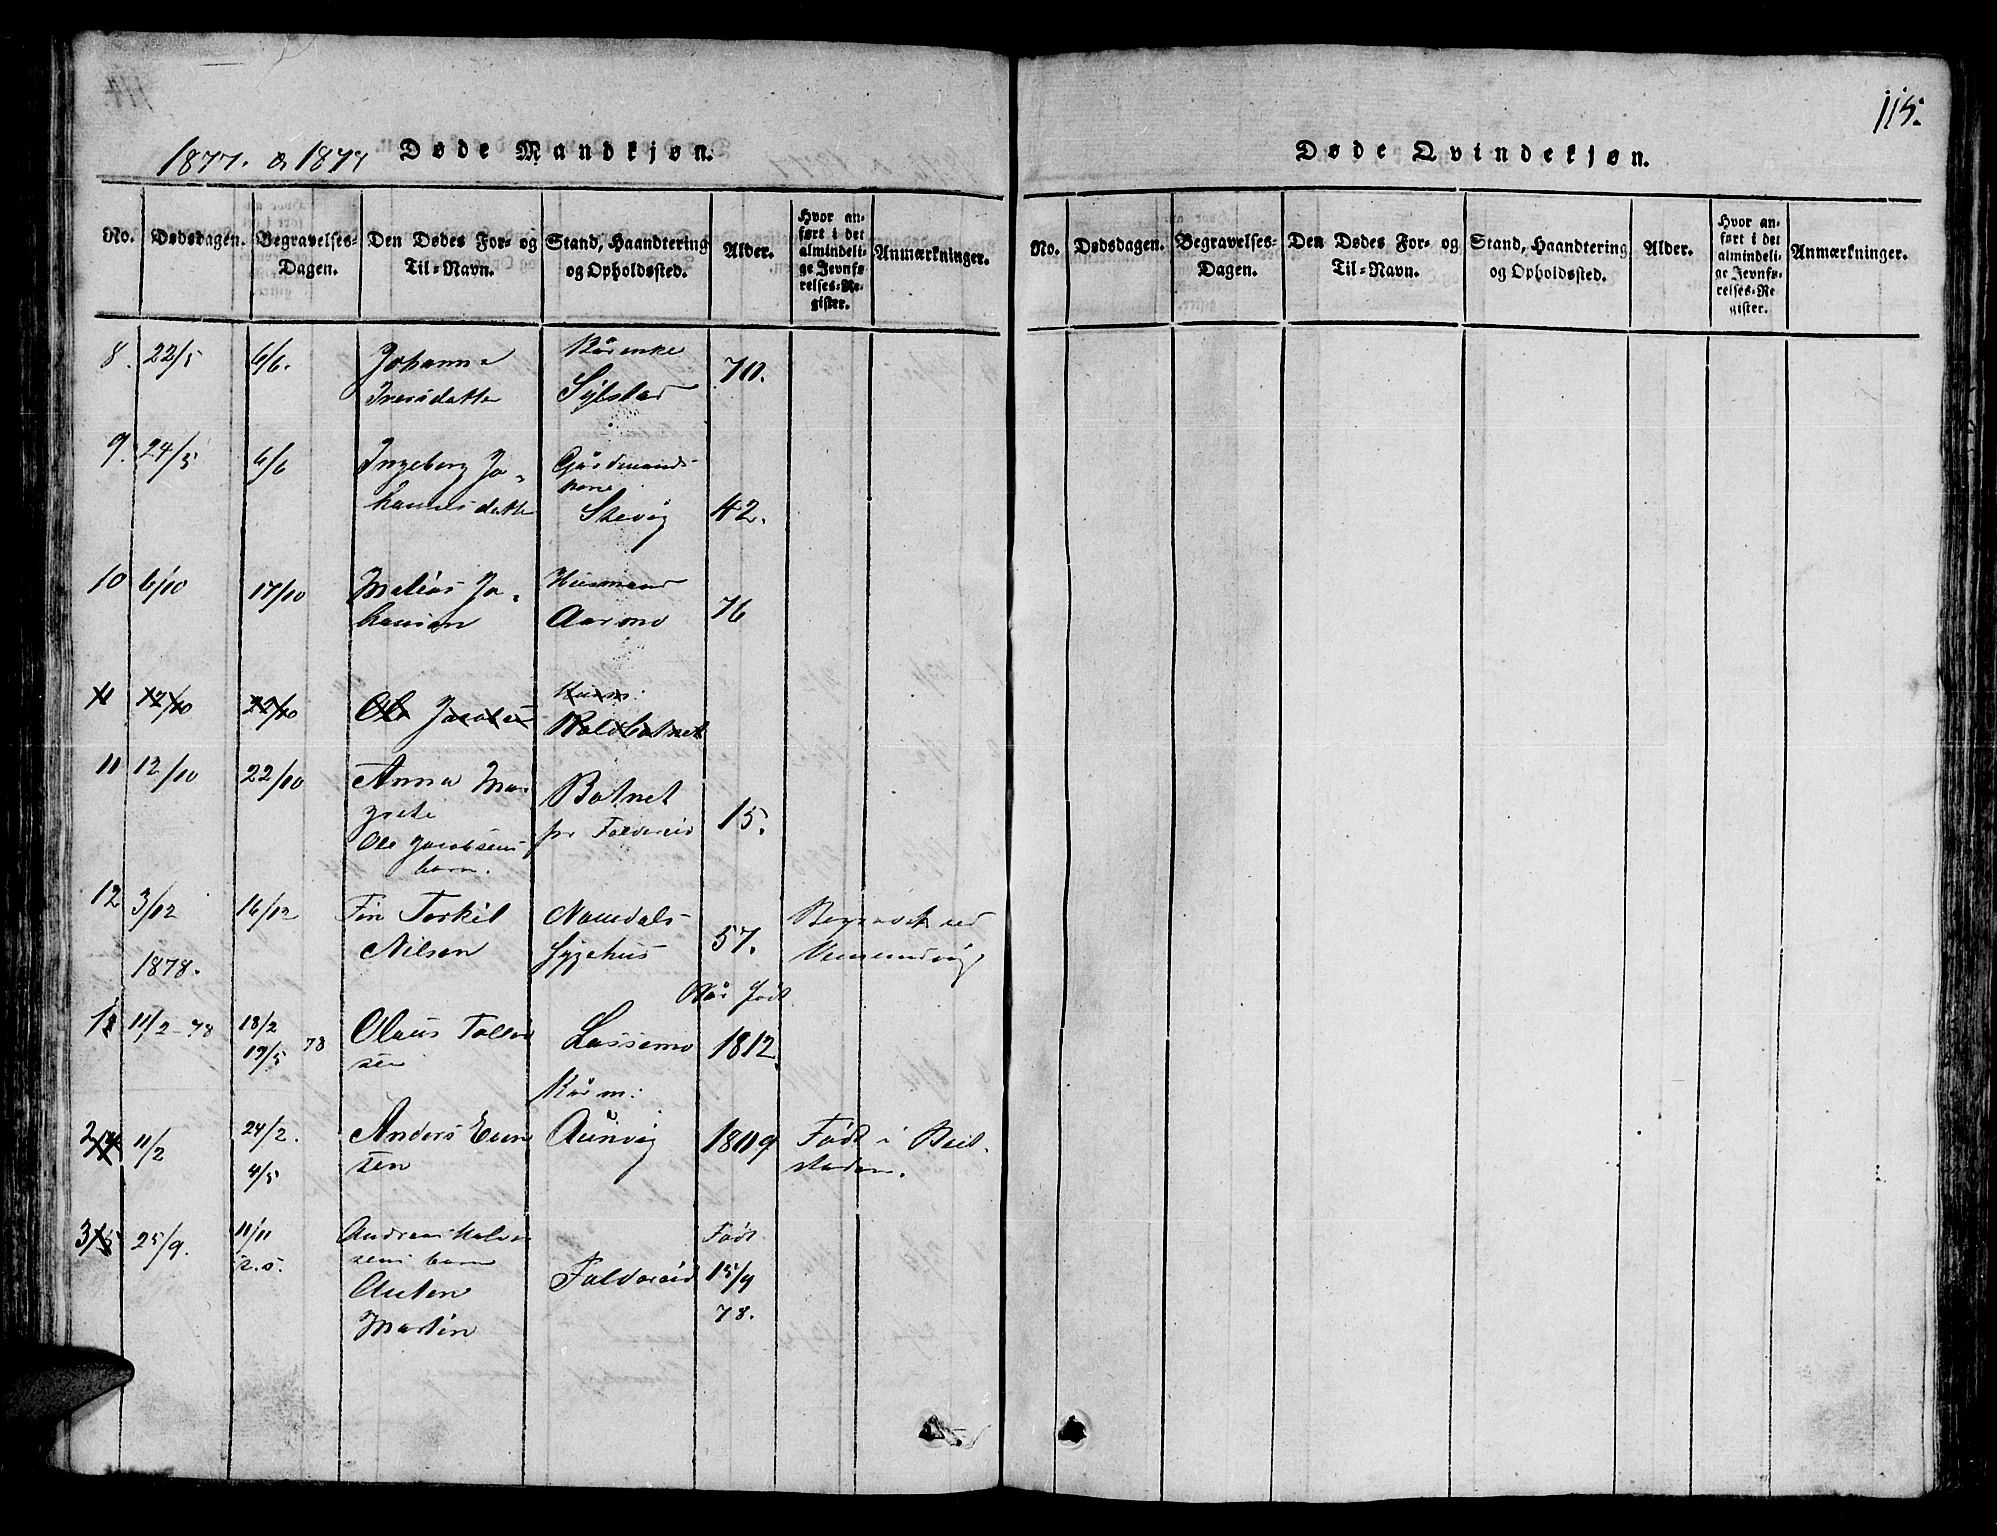 115.
1877. & 1878 Døde Mandkjøn.
No. Dødsdagen. Begravelses-Dagen. Den Dødes For- og Til-Navn. Stand, Haandtering og Opholdssted. Alder. Hvor anført i det almindelige Jevnførelses-Register. Anmærkninger.
8. 22/5 6/6. Johanna Kårenke 70.
Iversdatter Sylstad
9. 24/5 6/6 Ingeborg Jo- Gårdmands
kone
hannesdatter 42.
10 6/10 17/10 Matias Jo- Husmand
hansen Aarmo 76
11 12/10 22/10 Ole Jacobsen
11 12/10 22/10 Anna Mar- Botnet
grete pr Foldereid 15.
Ole Jacobsens
barn.
12 3/12 16/12 Fin Torkil Namdals- Begravet ved
Nilsen Sygehus 57.
1878. Når født
1 11/2-78 18/2 78 Olaus Lassemo 1812.
19/5 sen
Kårm:
2 11/2 24/2. Anders Aunvig 1809 Født i Beit-
4/5 sen staden.
3 25/9. 11/11 Andreas Født
s.s. sens barn
Anton Foldereid 15/9
Martin 78.
Døde Qvindekjøn.
No. Dødsdagen. Begravelses-Dagen. Den Dødes For- og Til-Navn. Stand, Haandtering og Opholdssted. Alder. Hvor anført i det almindelige Jevnførelses-Register. Anmærkninger.